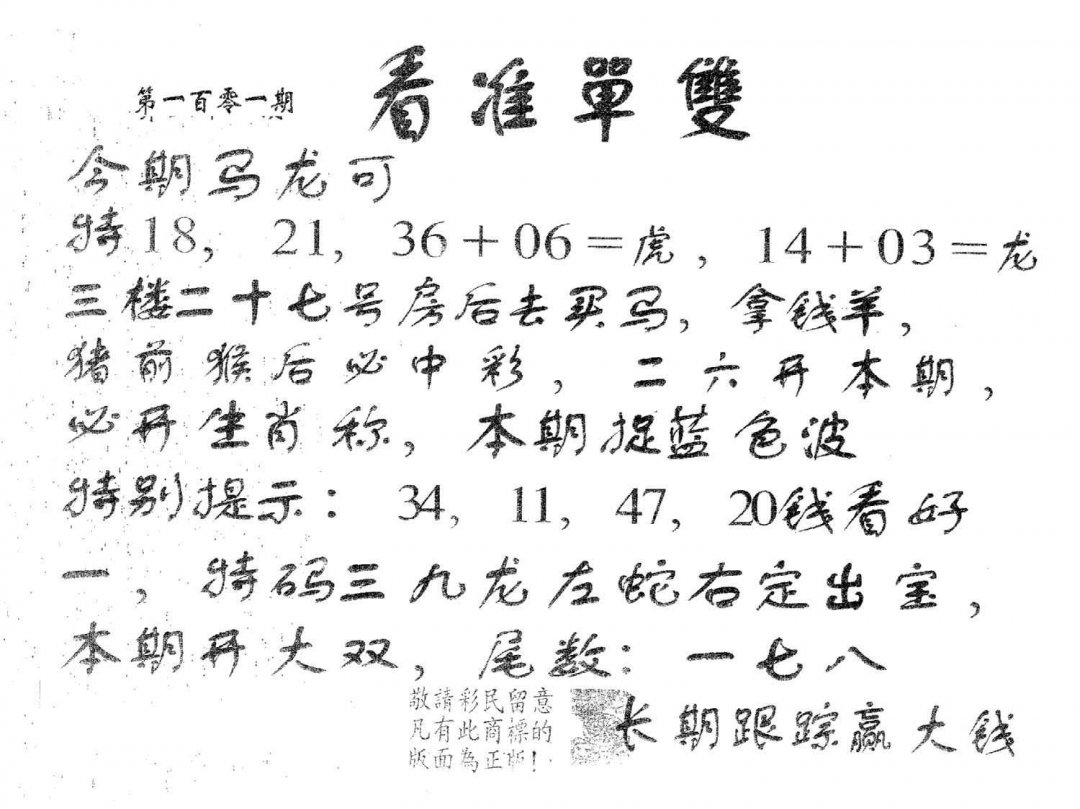 第一百零一期
看准單雙
今期马龙可
特18, 21, 36+06=虎, 14+03=龙
三楼二十七号房后去买马, 拿钱羊,
猪前猴后必中彩, 二六开本期,
必开生肖称, 本期捉蓝色波
特别提示: 34, 11, 47, 20钱看好
一, 特码三九龙左蛇右定出宝,
本期开大双, 尾数: 一七八
敬請彩民留意
凡有此商標的
版面為正版!
长期跟踪赢大钱